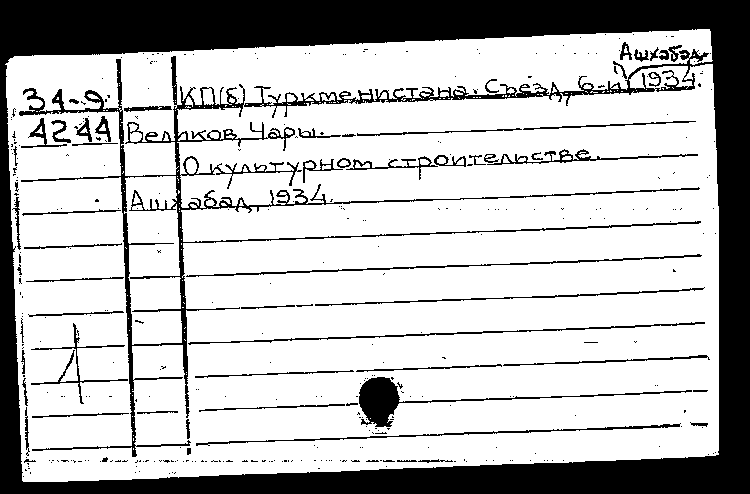 Ашхабад,
34-9 КП(б) Туркменистана. Съезд, 6-й, 1934.
4244 Великов, Чары.
О культурном строительстве.
Ашхабад, 1934.
1